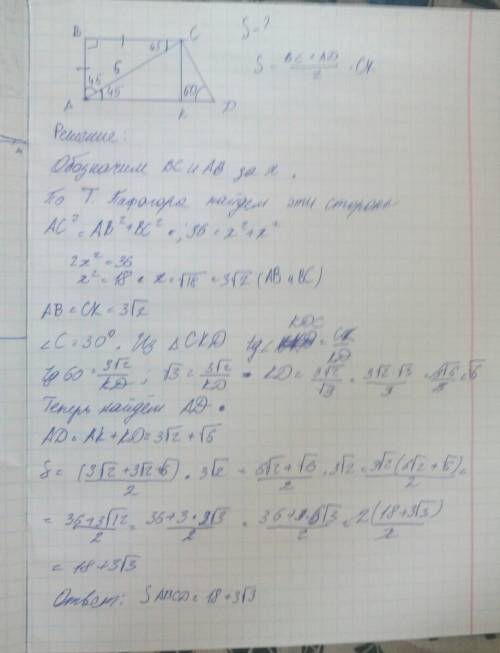 B C S=?
45 S = (BC + AD)/2 · CK
6
45
45 60
A K D
Решение:
Обозначим BC и AB за x.
По Т. Пифагора найдем эти стороны
AC² = AB² + BC² ; 36 = x² + x²
2x² = 36
x² = 18 x = √18 = 3√2 (AB и BC)
AB = CK = 3√2
∠C = 30°. Из △CKD tg∠KDC = CK/KD
tg 60 = 3√2/KD ; √3 = 3√2/KD KD = 3√2/√3 = 3√2·√3/3 = 3√6/3 = √6
Теперь найдём AD.
AD = AK + KD = 3√2 + √6
S = (3√2 + 3√2 + √6)/2 · 3√2 = 6√2 + √6/2 · 3√2 = 3√2(6√2 + √6)/2 =
= 36+3√12/2 = 36+3·2√3/2 = 36+6√3/2 = 2(18+3√3)/2
= 18+3√3
Ответ: S ABCD = 18+3√3